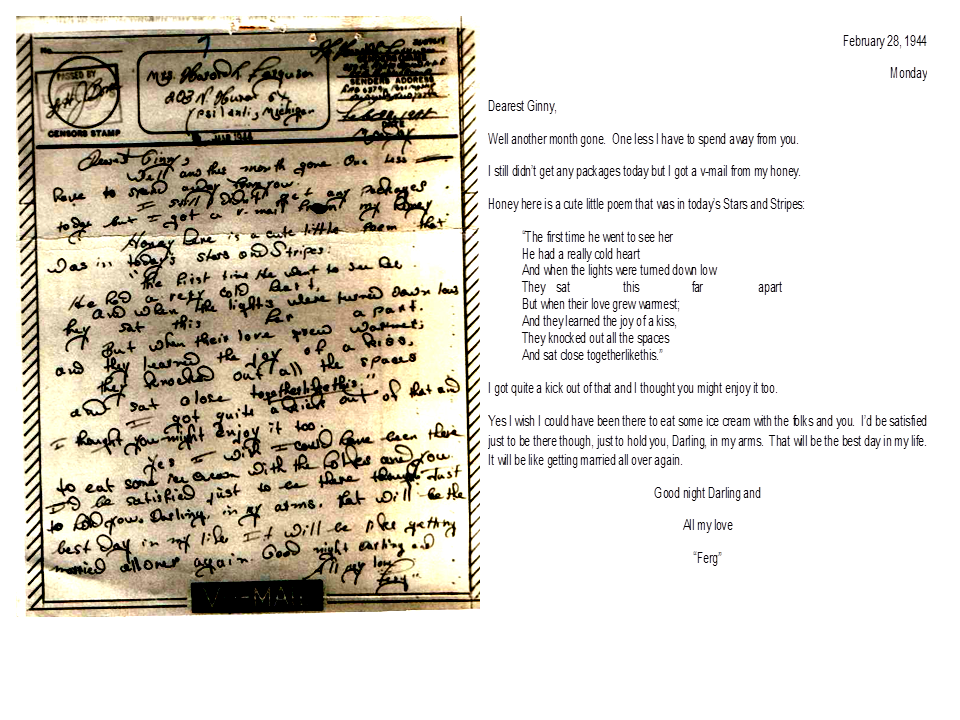 No.
PASSED BY
CENSORS STAMP
Mrs. Harold L. Ferguson
203 N. Huron St
Ypsilanti, Michigan
SENDERS ADDRESS
DATE
Monday
Dearest Ginny,
Well another month gone One less
have to spend away from you.
I still didn't get any packages
today but I got a v-mail from my honey
Honey here is a cute little poem that
was in today's Stars and Stripes:
"The first time he went to see her
He had a really cold heart,
and when the lights were turned down low
They sat this far apart.
But when their love grew warmest;
and they learned the joy of a kiss,
they knocked out all the spaces
and sat close togetherlikethis."
I got quite a kick out of that and
I thought you might enjoy it too.
Yes I wish I could have been there
to eat some ice cream with the folks and you.
I'd be satisfied just to be there though Just
to hold you, Darling, in my arms. That will be the
best day in my life It will be like getting
married all over again. Good night darling and
All my love
"Ferg"
V-MAIL
February 28, 1944
Monday
Dearest Ginny,
Well another month gone. One less I have to spend away from you.
I still didn't get any packages today but I got a v-mail from my honey.
Honey here is a cute little poem that was in today's Stars and Stripes:
"The first time he went to see her
He had a really cold heart
And when the lights were turned down low
They sat this far apart
But when their love grew warmest;
And they learned the joy of a kiss,
They knocked out all the spaces
And sat close togetherlikethis."
I got quite a kick out of that and I thought you might enjoy it too.
Yes I wish I could have been there to eat some ice cream with the folks and you. I'd be satisfied
just to be there though, just to hold you, Darling, in my arms. That will be the best day in my life.
It will be like getting married all over again.
Good night Darling and
All my love
"Ferg"